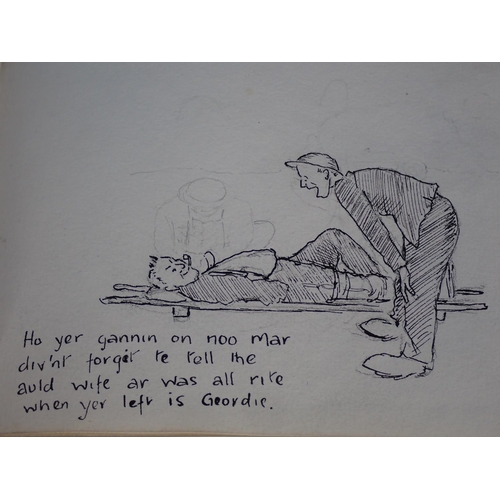 Ho yer gannin on noo mar
div'nt forget te tell the
auld wife ar was all rite
when yer left is Geordie.